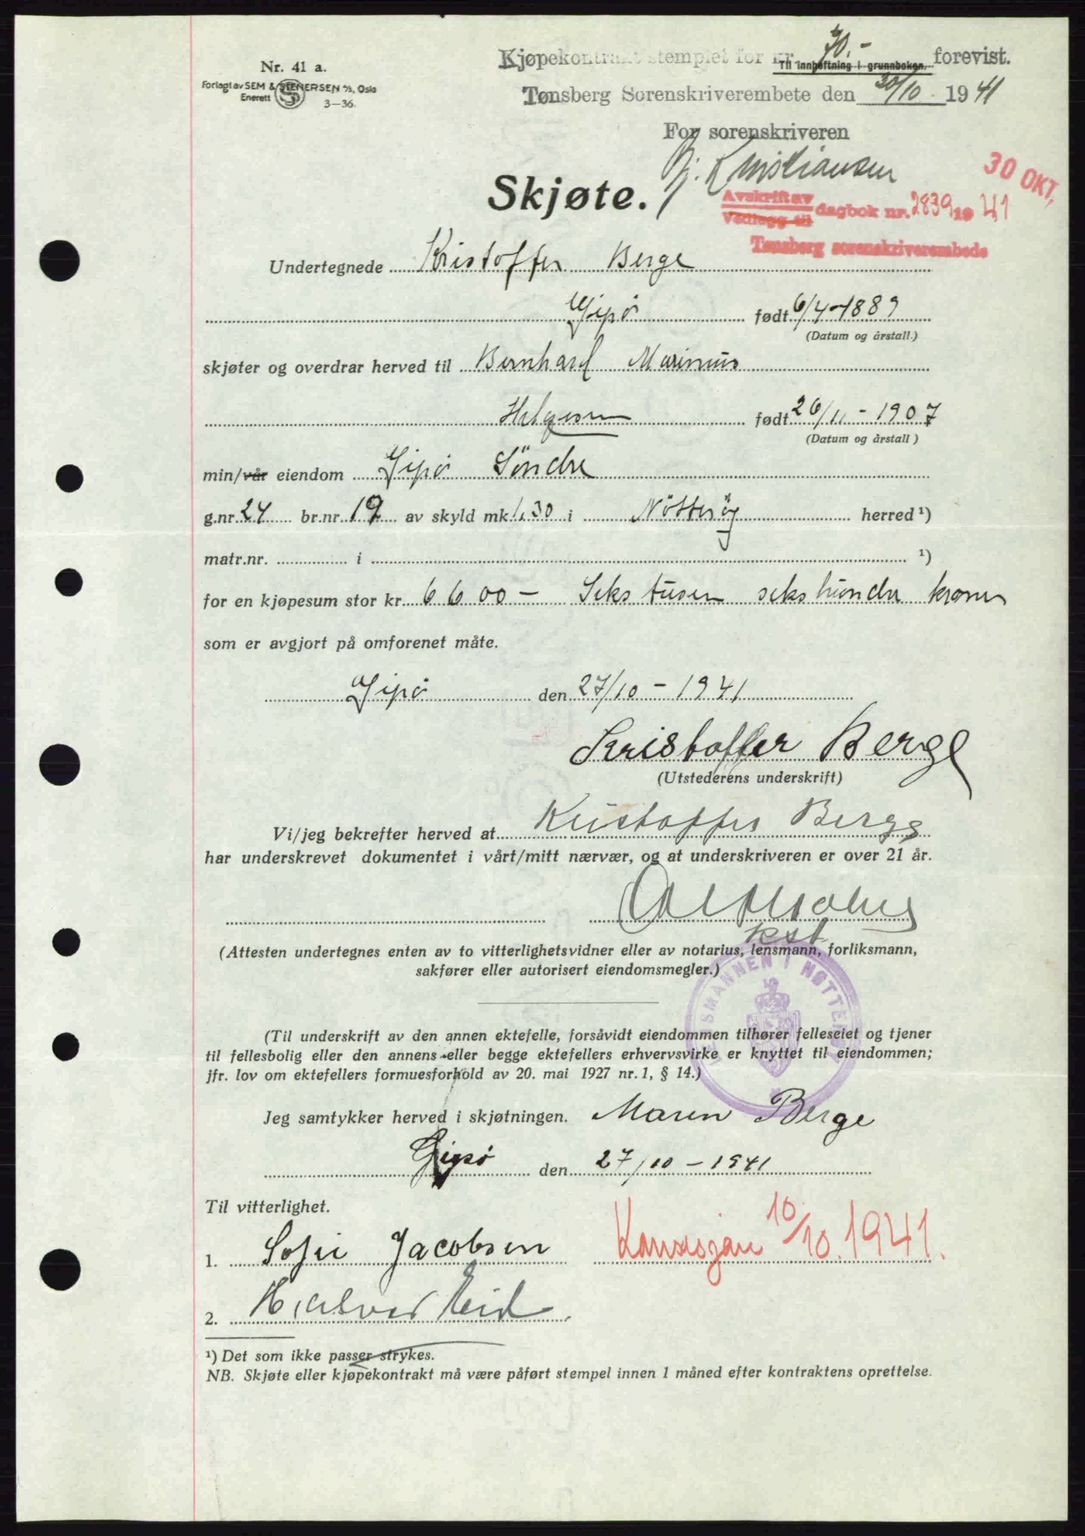 Nr. 41 a.
Forlagt av SEM & STENERSEN A/S, Oslo
Enerett
3—36.
Kjøpekontrakt stemplet for kr. 70.- forevist.
Til innheftning i grunnboken.
Tønsberg Sorenskriverembete den 30/10 1941
For sorenskriveren
Bj. Kristiansen
30 OKT.
Skjøte.
Avskrift av
Vedlegg til
dagbok nr. 2839 1941
Tønsberg sorenskriverembede
Undertegnede Kristoffer Berge
Gipø født 6/4-1889
(Datum og årstall.)
skjøter og overdrar herved til Bernhard Marinius
Helgesen født 26/11-1907
(Datum og årstall)
min/vår eiendom Gipø Søndre
g.nr. 24 br.nr. 19 av skyld mk. 1,30 i Nøtterøy herred ¹)
matr.nr. i ¹)
for en kjøpesum stor kr. 6600- Seks tusen seks hundre kroner
som er avgjort på omforenet måte.
Gipø den 27/10-1941
Kristoffer Berge
(Utstederens underskrift)
Vi/jeg bekrefter herved at Kristoffer Berge
har underskrevet dokumentet i vårt/mitt nærvær, og at underskriveren er over 21 år.
(Attesten undertegnes enten av to vitterlighetsvidner eller av notarius, lensmann, forliksmann,
sakfører eller autorisert eiendomsmegler.)
LENSMANNEN I NØTTERØY
(Til underskrift av den annen ektefelle, forsåvidt eiendommen tilhører felleseiet og tjener
til fellesbolig eller den annens eller begge ektefellers erhvervsvirke er knyttet til eiendommen;
jfr. lov om ektefellers formuesforhold av 20. mai 1927 nr. 1, § 14.)
Jeg samtykker herved i skjøtningen. Maren Berge
Gipø den 27/10-1941
Til vitterlighet.
1. Sofie Jacobsen
10/10.1941.
2. Halvor Eid
¹) Det som ikke passer strykes.
NB. Skjøte eller kjøpekontrakt må være påført stempel innen 1 måned efter kontraktens oprettelse.